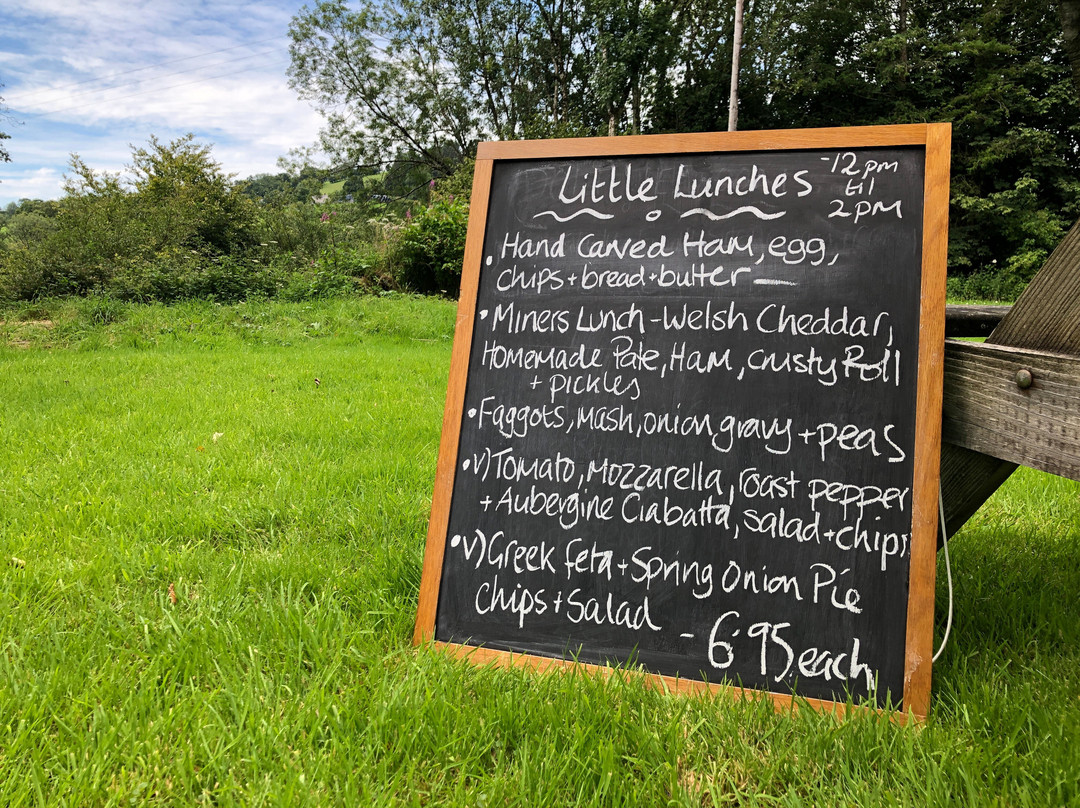 Little Lunches -12pm
til
2pm
• Hand Carved Ham, egg,
chips + bread + butter —
• Miners Lunch - Welsh Cheddar,
Homemade Pate, Ham, Crusty Roll
+ pickles
• Faggots, mash, onion gravy + peas
• v) Tomato, Mozzarella, roast pepper
+ Aubergine Ciabatta, salad + chips
• v) Greek feta + Spring Onion Pie
Chips + Salad
- 6.95 each